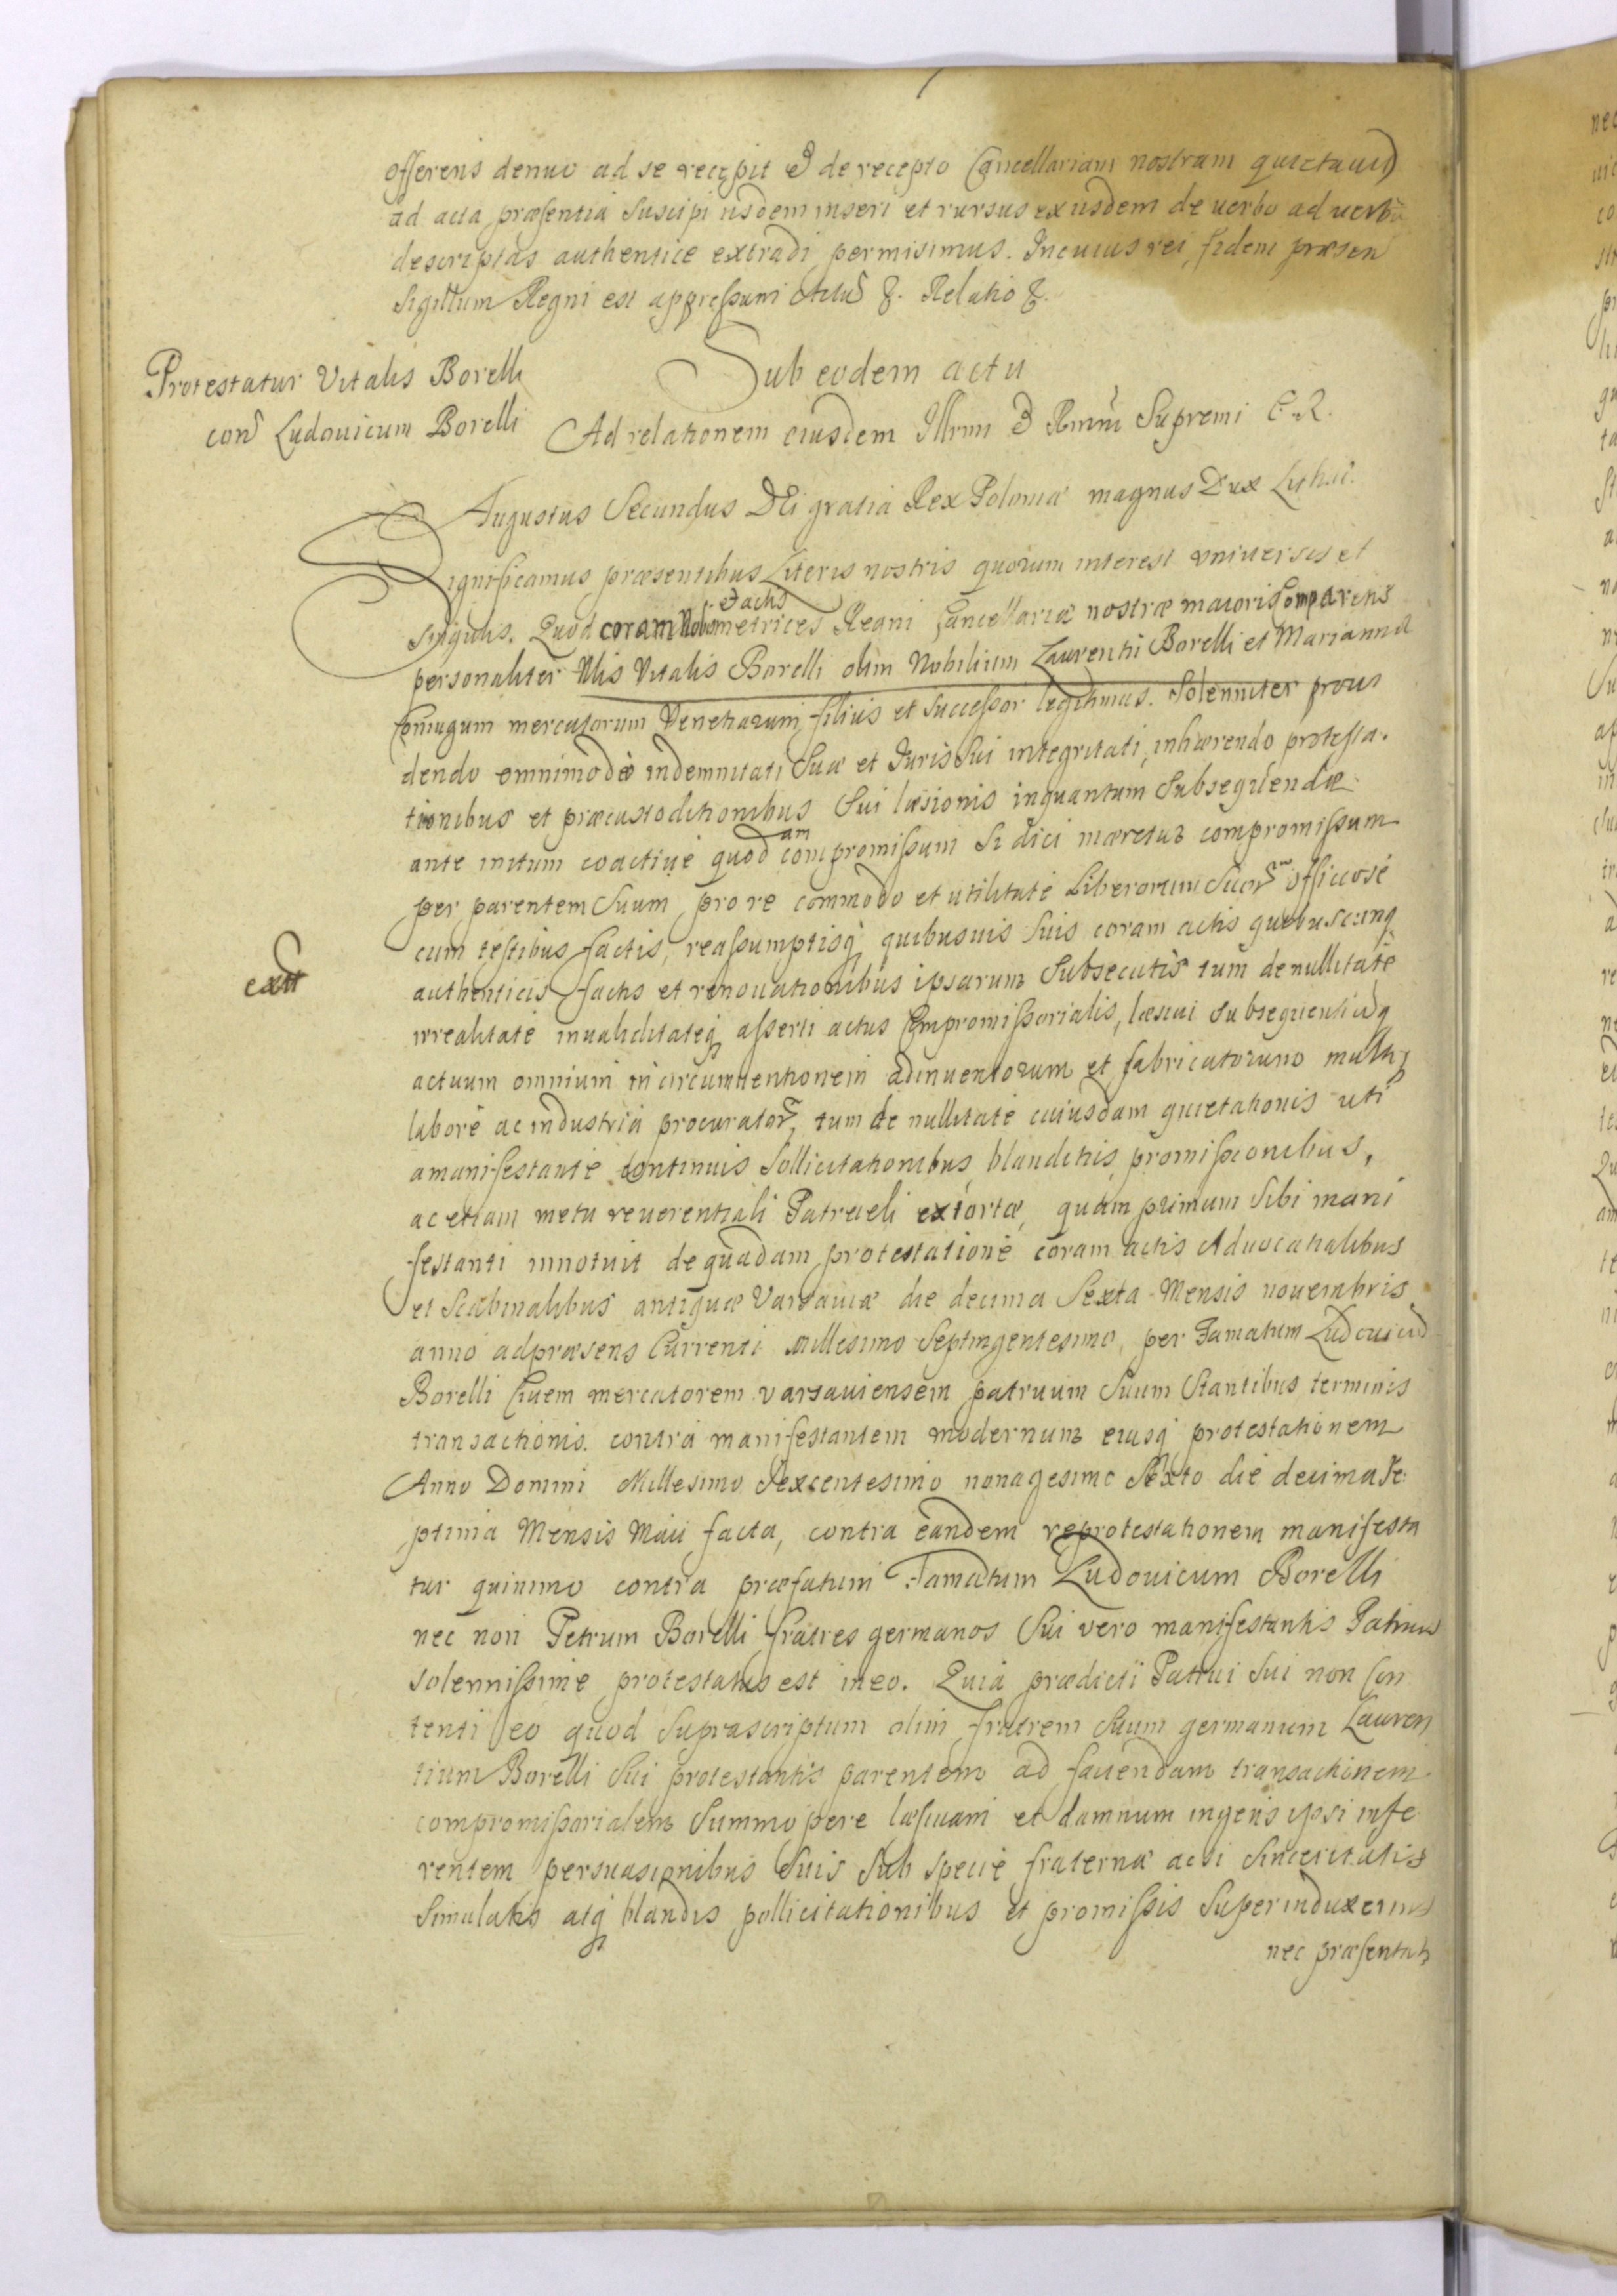 offerens denuo ad se recępit et de recepto Cancellariam nostram quietavit
ad acta præsentia suscipi iisdem inseri et rursus ex iisdem de verbo ad verbū
descriptas authentice extradi permisimus. In cuius rei fidem præsen
Sigillum Regni est appressum Actū &. Relatio &.
Protestatur Vitalis Borelli
con Ludouicum Borelli
Sub eodem actu
Ad relationem eiusdem Illrmi & Rmm Supremi C. R.
Augustus Secundus DEi gratia Rex Poloniæ magnus Dux Lithu:
Significamus præsentibus Literis nostris quorum interest vniuersis et
singulis. Quod coram Nobis et actis metrices Regni Cancellariæ nostræ maioris Comparens
personaliter Nlis Vitalis Borelli olim Nobilium Laurentii Borelli et Marianna
Coniugum mercatorum Venetiarum filius et Successor legitimus. Solenniter proui
dendo omnimodæ indemnitati Suæ et Juris Sui integritati, inhærendo protesta.
tionibus et præcustoditionibus Sui læsionis inquantum Subsequendæ
ante initum coactiuè quoddam compromissum Si dici mæretur compromissum
per parentem Suum pro re commodo et utilitate Liberorum Suor officiosè
cum testibus factis, reassumptisq quibusuis Suis coram actis quibuscunq
authenticis factis et renouationibus ipsarum Subsecutis tum de nullitate
exdt
irrealitate inualiditateq asserti actus Compromissorialis, læsiui Subsequentiūq
actuum omnium in circumuentionem adinuentorum et fabricatorum multo
labore ac industria procurator, tum de nullitate cuiusdam quietationis uti
a manifestante continuis Sollicitationibus, blanditiis, promissionibus,
ac etiam metu reuerentiali Patrueli extortæ, quam primum Sibi mani
festanti innotuit de quadam protestatione coram actis Aduocatialibus
et Scabinalibus antiquæ Varsauiæ die decima Sexta Mensis nouembris
anno adpræsens Currenti millesimo Septingentesimo, per Famatum Ludouicū
Borelli Ciuem mercatorem varsauiensem patruum Suum Stantibus terminis
transactionis. contra manifestantem modernum eiusq protestationem
Anno Domini Millesimo Sexcentesimo nonagesimo Sexto die decima Se
ptima Mensis Maii facta, contra eandem reprotestationem manifesta
tur quinimo contra præfatum Famatum Ludouicum Borelli
nec non Petrum Borelli fratres germanos Sui vero manifestantis Patruos
solennissime protestatus est in eo. Quia prædicti Patrui Sui non Con
tenti eo quod Suprascriptum olim fratrem Suum germanum Lauren
tium Borelli Sui protestantis parentem ad fauendam transactionem
compromissorialem Summopere læsiuam et damnum ingens ipsi infe
rentem persuasionibus Suis Sub specie fraternæ acsi Sinceritatis
Simulatis atq blandis pollicitationibus et promissis Superinduxerint
nec præsentati